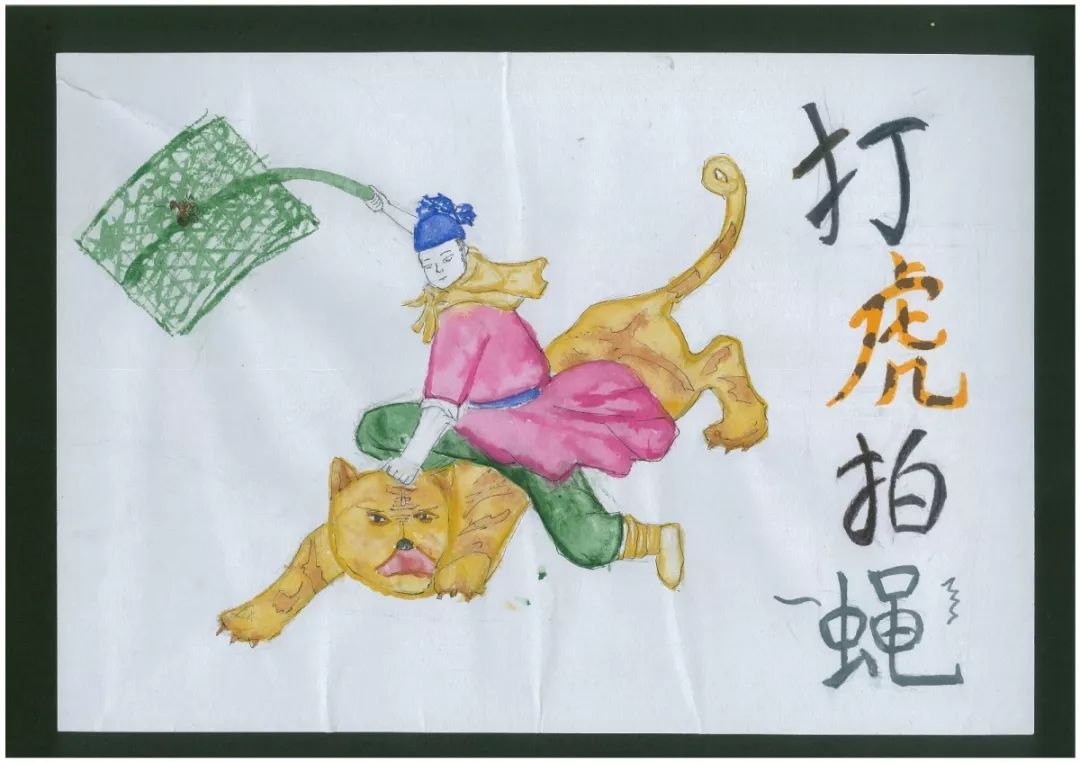 打虎拍蝇